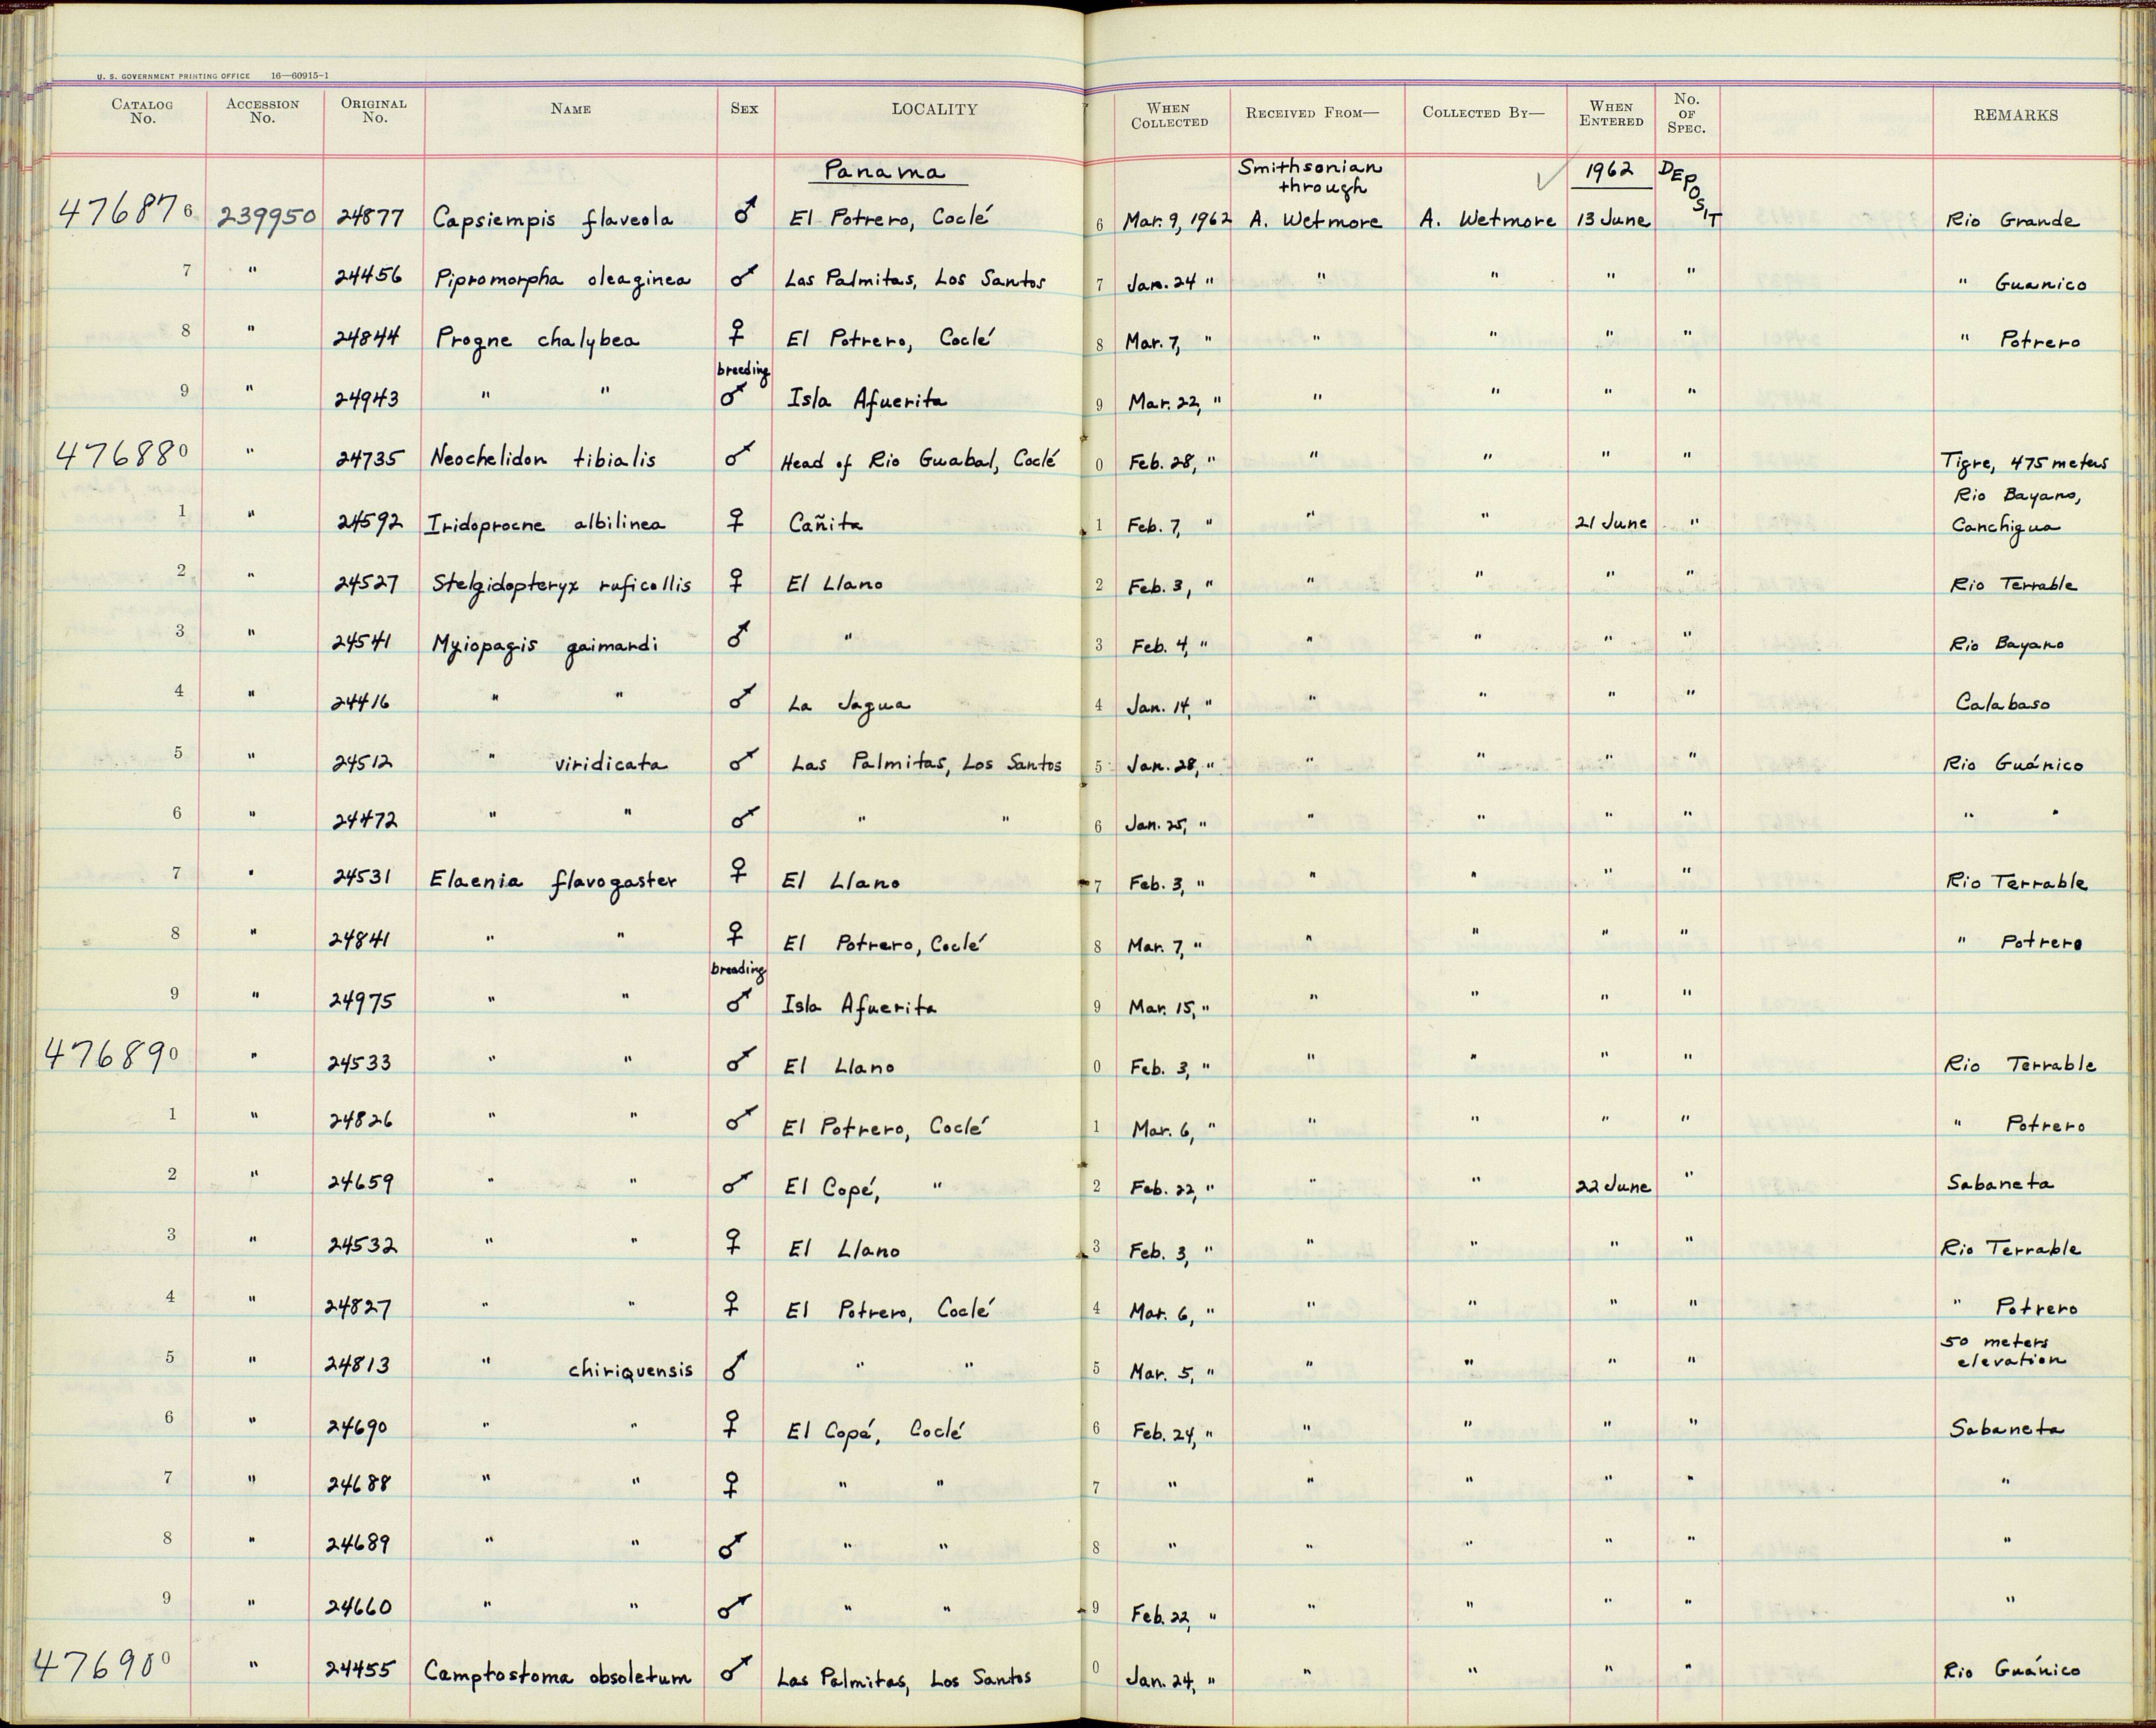 U. S. GOVERNMENT PRINTING OFFICE 16—60915-1
CATALOG No. ACCESSION No. ORIGINAL No. NAME SEX LOCALITY WHEN COLLECTED RECEIVED FROM— COLLECTED BY— WHEN ENTERED No. OF SPEC. REMARKS
Panama Smithsonian through ✓ 1962 DEPOSIT
476876 239950 24877 Capsiempis flaveola ♂ El Potrero, Coclé 6 Mar. 9, 1962 A. Wetmore A. Wetmore 13 June Rio Grande
7 " 24456 Pipromorpha oleaginea ♂ Las Palmitas, Los Santos 7 Jan. 24 " " " " " " Guanico
8 " 24844 Progne chalybea ♀ El Potrero, Coclé 8 Mar. 7, " " " " " " Potrero
9 " 24943 " " breeding ♂ Isla Afuerita 9 Mar. 22, " " " " "
476880 " 24735 Neochelidon tibialis ♂ Head of Rio Guabal, Coclé 0 Feb. 28, " " " " " Tigre, 475 meters
1 " 24592 Iridoprocne albilinea ♀ Cañita 1 Feb. 7, " " " 21 June " Rio Bayano, Canchigua
2 " 24527 Stelgidopteryx ruficollis ♀ El Llano 2 Feb. 3, " " " " " Rio Terrable
3 " 24541 Myiopagis gaimardi ♂ " 3 Feb. 4, " " " " " Rio Bayano
4 " 24416 " " ♂ La Jagua 4 Jan. 14, " " " " " Calabaso
5 " 24512 " viridicata ♂ Las Palmitas, Los Santos 5 Jan. 28, " " " " " Rio Guánico
6 " 24472 " " ♂ " " 6 Jan. 25, " " " " " " "
7 " 24531 Elaenia flavogaster ♀ El Llano 7 Feb. 3, " " " " " Rio Terrable
8 " 24841 " " ♀ El Potrero, Coclé 8 Mar. 7, " " " " " " Potrero
9 " 24975 " " breeding ♂ Isla Afuerita 9 Mar. 15, " " " " "
476890 " 24533 " " ♂ El Llano 0 Feb. 3, " " " " " Rio Terrable
1 " 24826 " " ♂ El Potrero, Coclé 1 Mar. 6, " " " " " " Potrero
2 " 24659 " " ♂ El Copé, " 2 Feb. 22, " " " 22 June " Sabaneta
3 " 24532 " " ♀ El Llano 3 Feb. 3, " " " " " Rio Terrable
4 " 24827 " " ♀ El Potrero, Coclé 4 Mar. 6, " " " " " " Potrero
5 " 24813 " chiriquensis ♂ " " 5 Mar. 5, " " " " " 50 meters elevation
6 " 24690 " " ♀ El Copé, Coclé 6 Feb. 24, " " " " " Sabaneta
7 " 24688 " " ♀ " " 7 " " " " " "
8 " 24689 " " ♂ " " 8 " " " " " "
9 " 24660 " " ♂ " " 9 Feb. 22, " " " " " "
476900 " 24455 Camptostoma obsoletum ♂ Las Palmitas, Los Santos 0 Jan. 24, " " " " " Rio Guánico